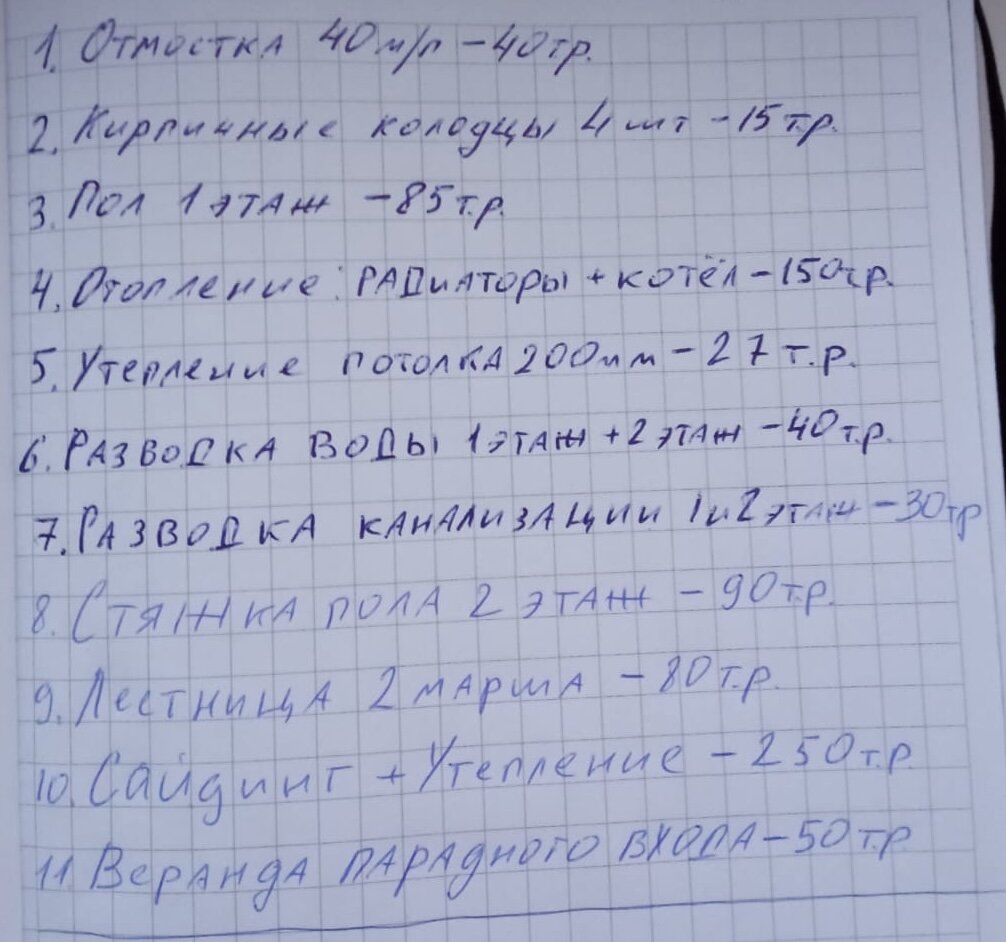 1. Отмостка 40 м/п - 40 тр.
2. Кирпичные колодцы 4 шт - 15 т.р.
3. Пол 1 этаж - 85 т.р.
4. Отопление: радиаторы + котёл - 150 т.р.
5. Утепление потолка 200 мм - 27 т.р.
6. Разводка воды 1 этаж + 2 этаж - 40 т.р.
7. Разводка канализации 1 и 2 этаж - 30 тр
8. Стяжка пола 2 этаж - 90 т.р.
9. Лестница 2 марша - 80 т.р.
10. Сайдинг + Утепление - 250 т.р.
11. Веранда парадного входа - 50 т.р